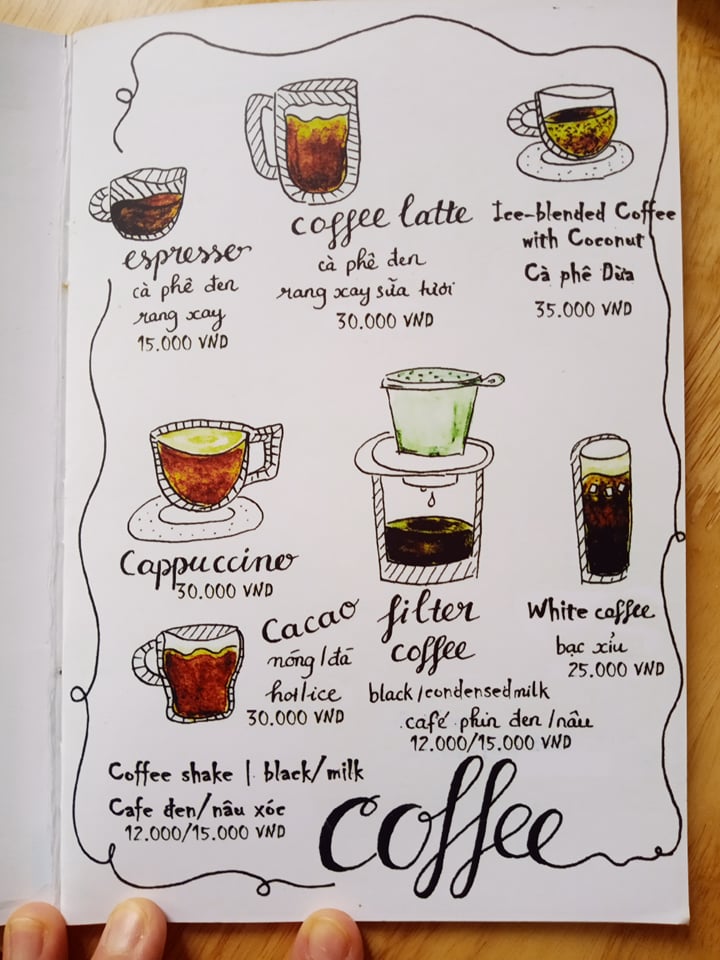 espresso
cà phê đen
rang xay
15.000 VND
coffee latte
cà phê đen
rang xay sữa tươi
30.000 VND
Ice-blended Coffee
with Coconut
Cà phê Dừa
35.000 VND
Cappuccino
30.000 VND
Cacao
nóng/đá
hot/ice
30.000 VND
filter
coffee
black/condensed milk
café phin đen/nâu
12.000/15.000 VND
White coffee
bạc xỉu
25.000 VND
Coffee shake | black/milk
Cafe đen/nâu xóc
12.000/15.000 VND
coffee